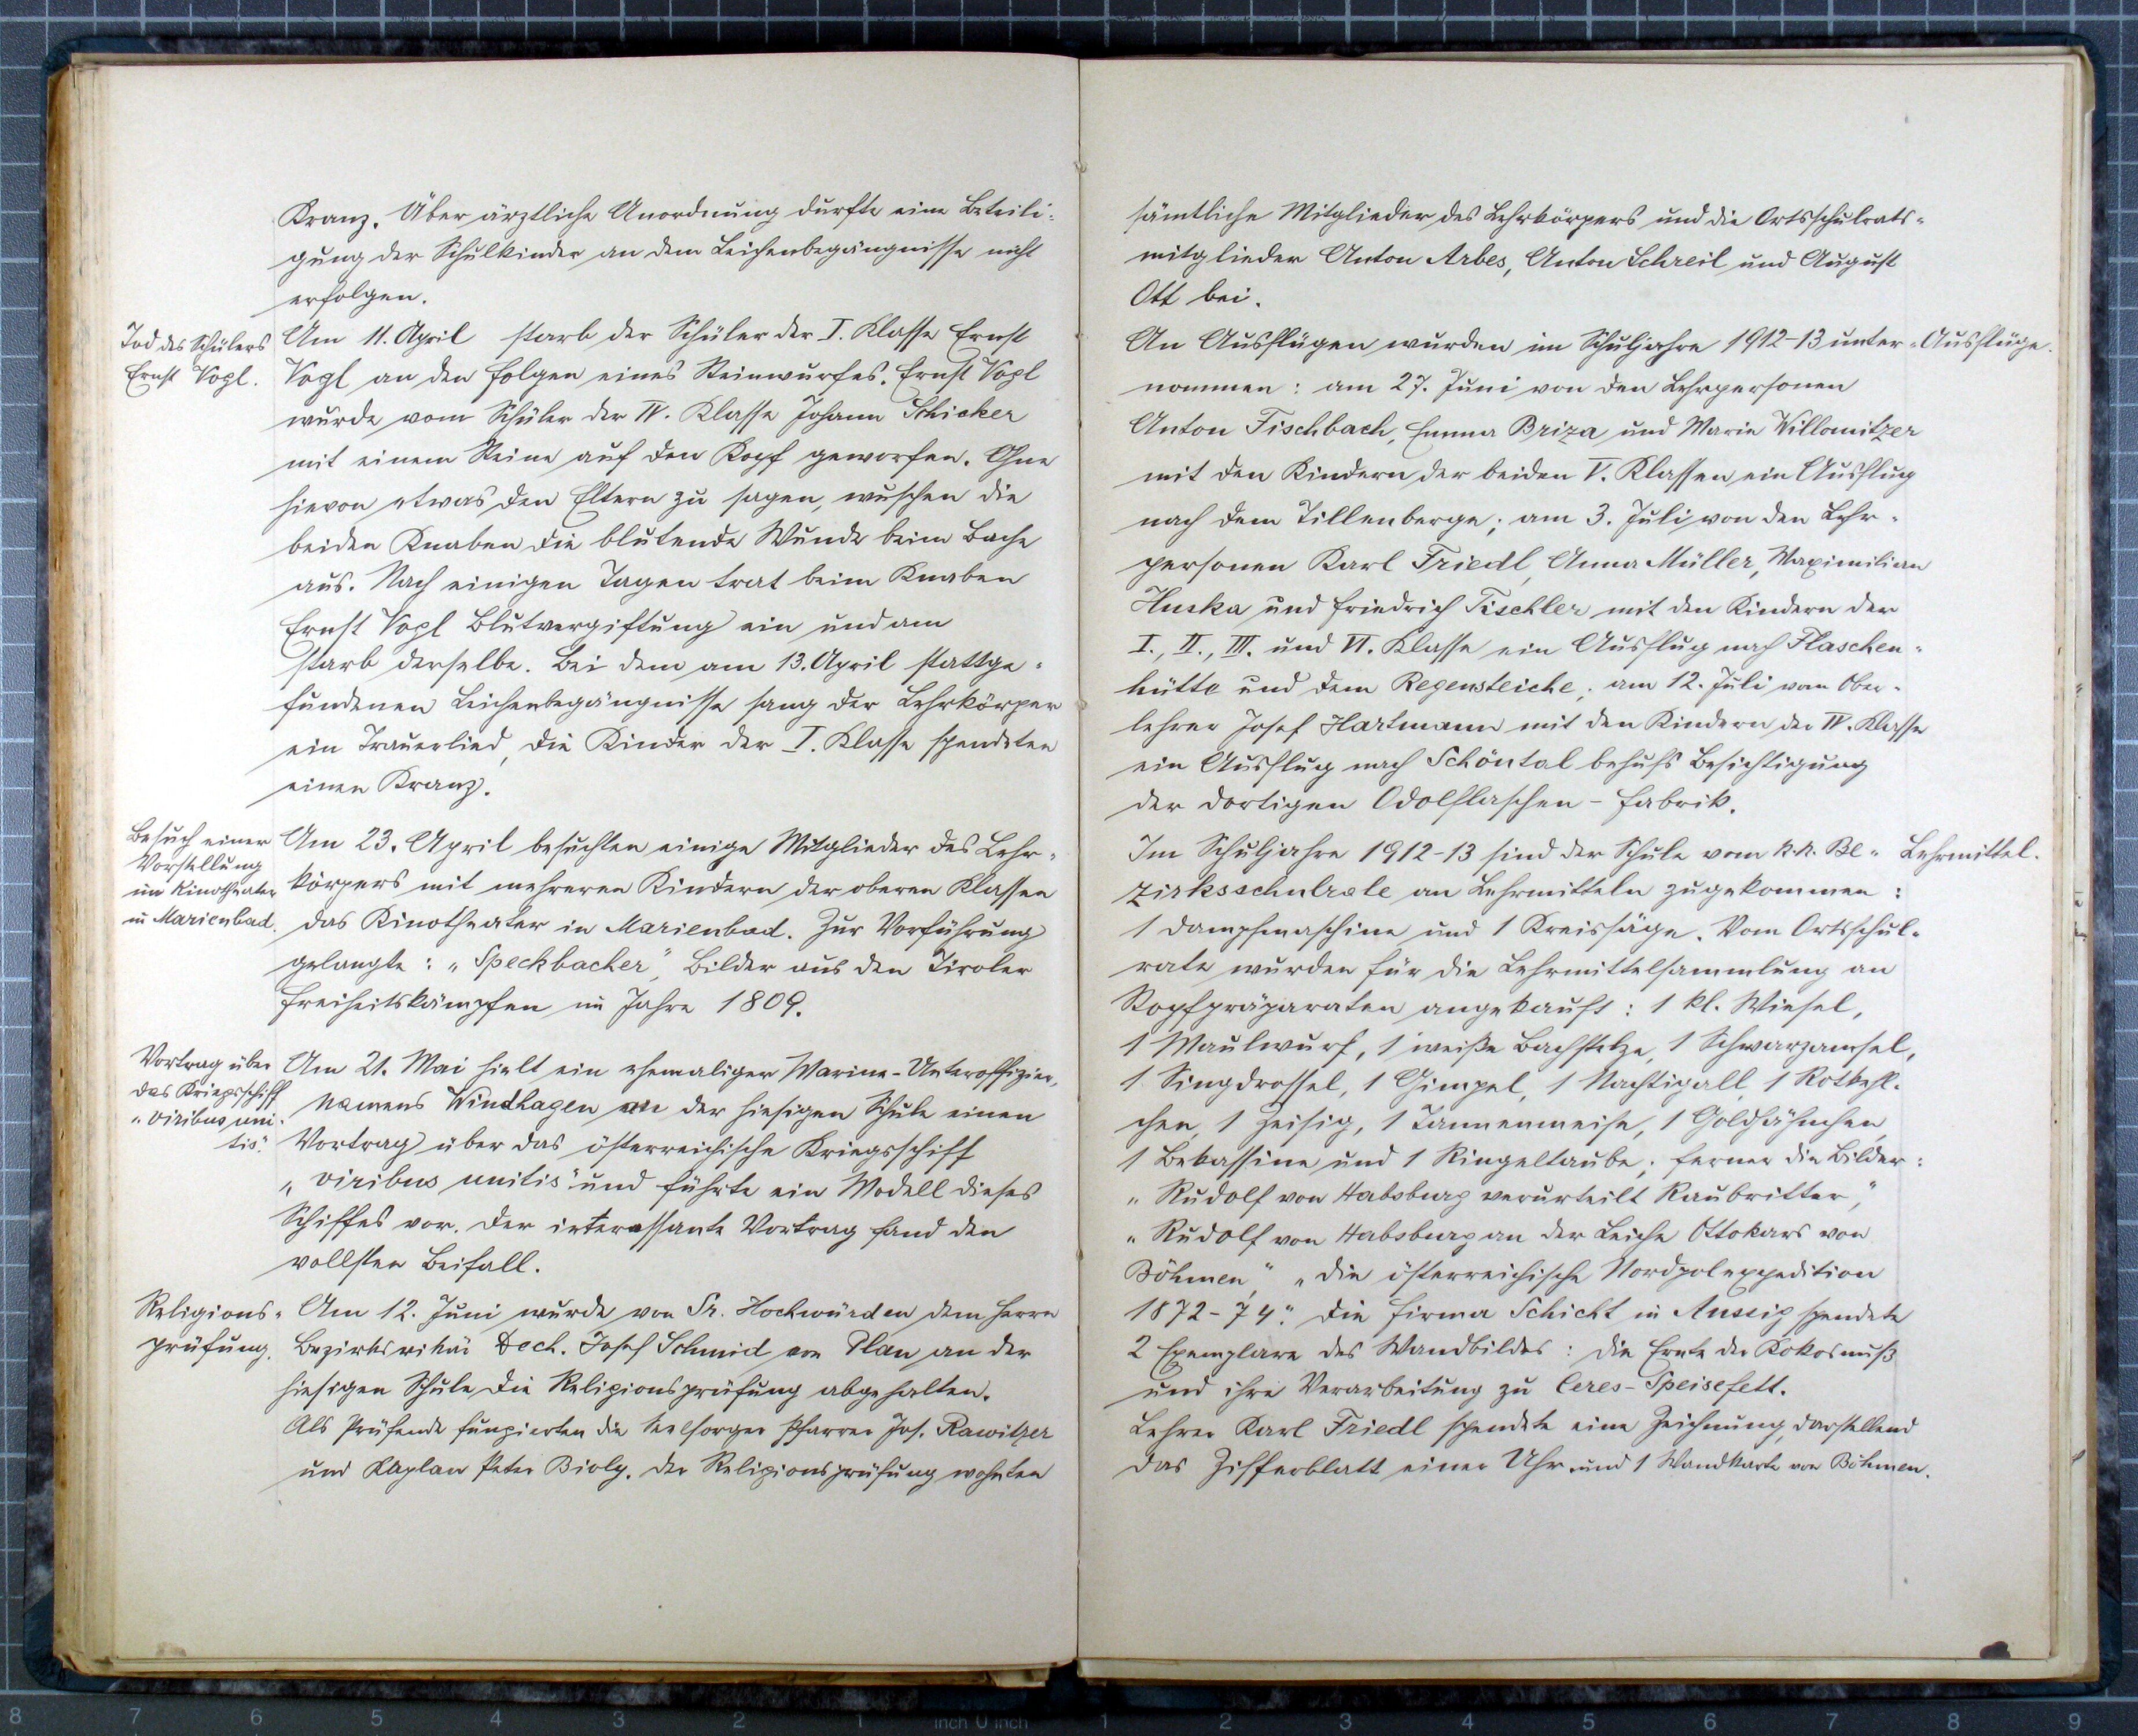 Kranz. Über ärztliche Anordnung durfte eine Beteili-
gung der Schulkinder an dem Leichenbegängnisse nicht
erfolgen.
Tod des Schülers
Ernst Vogl.
Am 11. April starb der Schüler der I. Klasse Ernst
Vogl an den Folgen eines Steinwurfes. Ernst Vogl
wurde vom Schüler der IV. Klasse Johann Schicker
mit einem Steine auf den Kopf geworfen. Ohne
hievon etwas den Eltern zu sagen, wuschen die
beiden Knaben die blutende Wunde beim Bache
aus. Nach einigen Tagen trat beim Knaben
Ernst Vogl Blutvergiftung ein und am
starb derselbe. Bei dem am 13. April stattge-
fundenen Leichenbegängnisse sang der Lehrkörper
ein Trauerlied, die Kinder der I. Klasse spendeten
einen Kranz.
Besuch einer
Vorstellung
im Kinotheater
in Marienbad.
Am 23. April besuchten einige Mitglieder des Lehr-
körpers mit mehreren Kindern der oberen Klassen
das Kinotheater in Marienbad. Zur Vorführung
gelangte: „Speckbacher", Bilder aus den Tiroler
Freiheitskämpfen im Jahre 1809.
Vortrag über
das Kriegsschiff
„viribus uni-
tis".
Am 21. Mai hielt ein ehemaliger Marine-Unteroffizier,
Namens Windhagen an der hiesigen Schule einen
Vortrag über das österreichische Kriegsschiff
„viribus unitis" und führte ein Modell dieses
Schiffes vor. Der interessante Vortrag fand den
vollsten Beifall.
Religions-
prüfung.
Am 12. Juni wurde von Sr. Hochwürden dem Herrn
Bezirksvikär Dech. Josef Schmid von Plan an der
hiesigen Schule die Religionsprüfung abgehalten.
Als Prüfende fungierten die Seelsorger Pfarrer Jos. Rawitzer
und Kaplan Peter Biolg. Der Religionsprüfung wohnten
sämtliche Mitglieder des Lehrkörpers und die Ortsschulrats-
mitglieder Anton Arbes, Anton Schreil und August
Ott bei.
An Ausflügen wurden im Schuljahre 1912-13 unter-
Ausflüge.
nommen: am 27. Juni von den Lehrpersonen
Anton Fischbach, Emma Briza und Marie Villomitzer
mit den Kindern der beiden V. Klassen ein Ausflug
nach dem Tillenberge; am 3. Juli von den Lehr-
personen Karl Friedl, Anna Müller, Maximilian
Huska und Friedrich Tischler mit den Kindern der
I., II., III. und VI. Klasse ein Ausflug nach Flaschen-
hütte und dem Regensteiche; am 12. Juli vom Ober-
lehrer Josef Hartmann mit den Kindern der IV. Klasse
ein Ausflug nach Schöntal behufs Besichtigung
der dortigen Odolflaschen-Fabrik.
Im Schuljahre 1912-13 sind der Schule vom k.k. Be-
Lehrmittel.
zirksschulrate an Lehrmitteln zugekommen:
1 Dampfmaschine und 1 Kreissäge. Vom Ortsschul-
rate wurden für die Lehrmittelsammlung an
Stopfpräparaten angekauft: 1 kl. Wiesel,
1 Maulwurf, 1 weiße Bachstelze, 1 Schwarzamsel,
1 Singdrossel, 1 Gimpel, 1 Nachtigall, 1 Rotkehl-
chen, 1 Zeisig, 1 Tannenmeise, 1 Goldhähnchen,
1 Bekassine und 1 Ringeltaube; ferner die Bilder:
„Rudolf von Habsburg verurteilt Raubritter",
„Rudolf von Habsburg an der Leiche Ottokars von
Böhmen", „Die österreichische Nordpolexpedition
1872-74". Die Firma Schicht in Aussig spendete
2 Exemplare des Wandbildes: Die Ernte der Kokosnuß
und ihre Verarbeitung zu Ceres-Speisefett.
Lehrer Karl Friedl spendete eine Zeichnung, darstellend
das Zifferblatt einer Uhr und 1 Wandkarte von Böhmen.
8 7 6 5 4 3 2 1 inch 0 inch 1 2 3 4 5 6 7 8 9